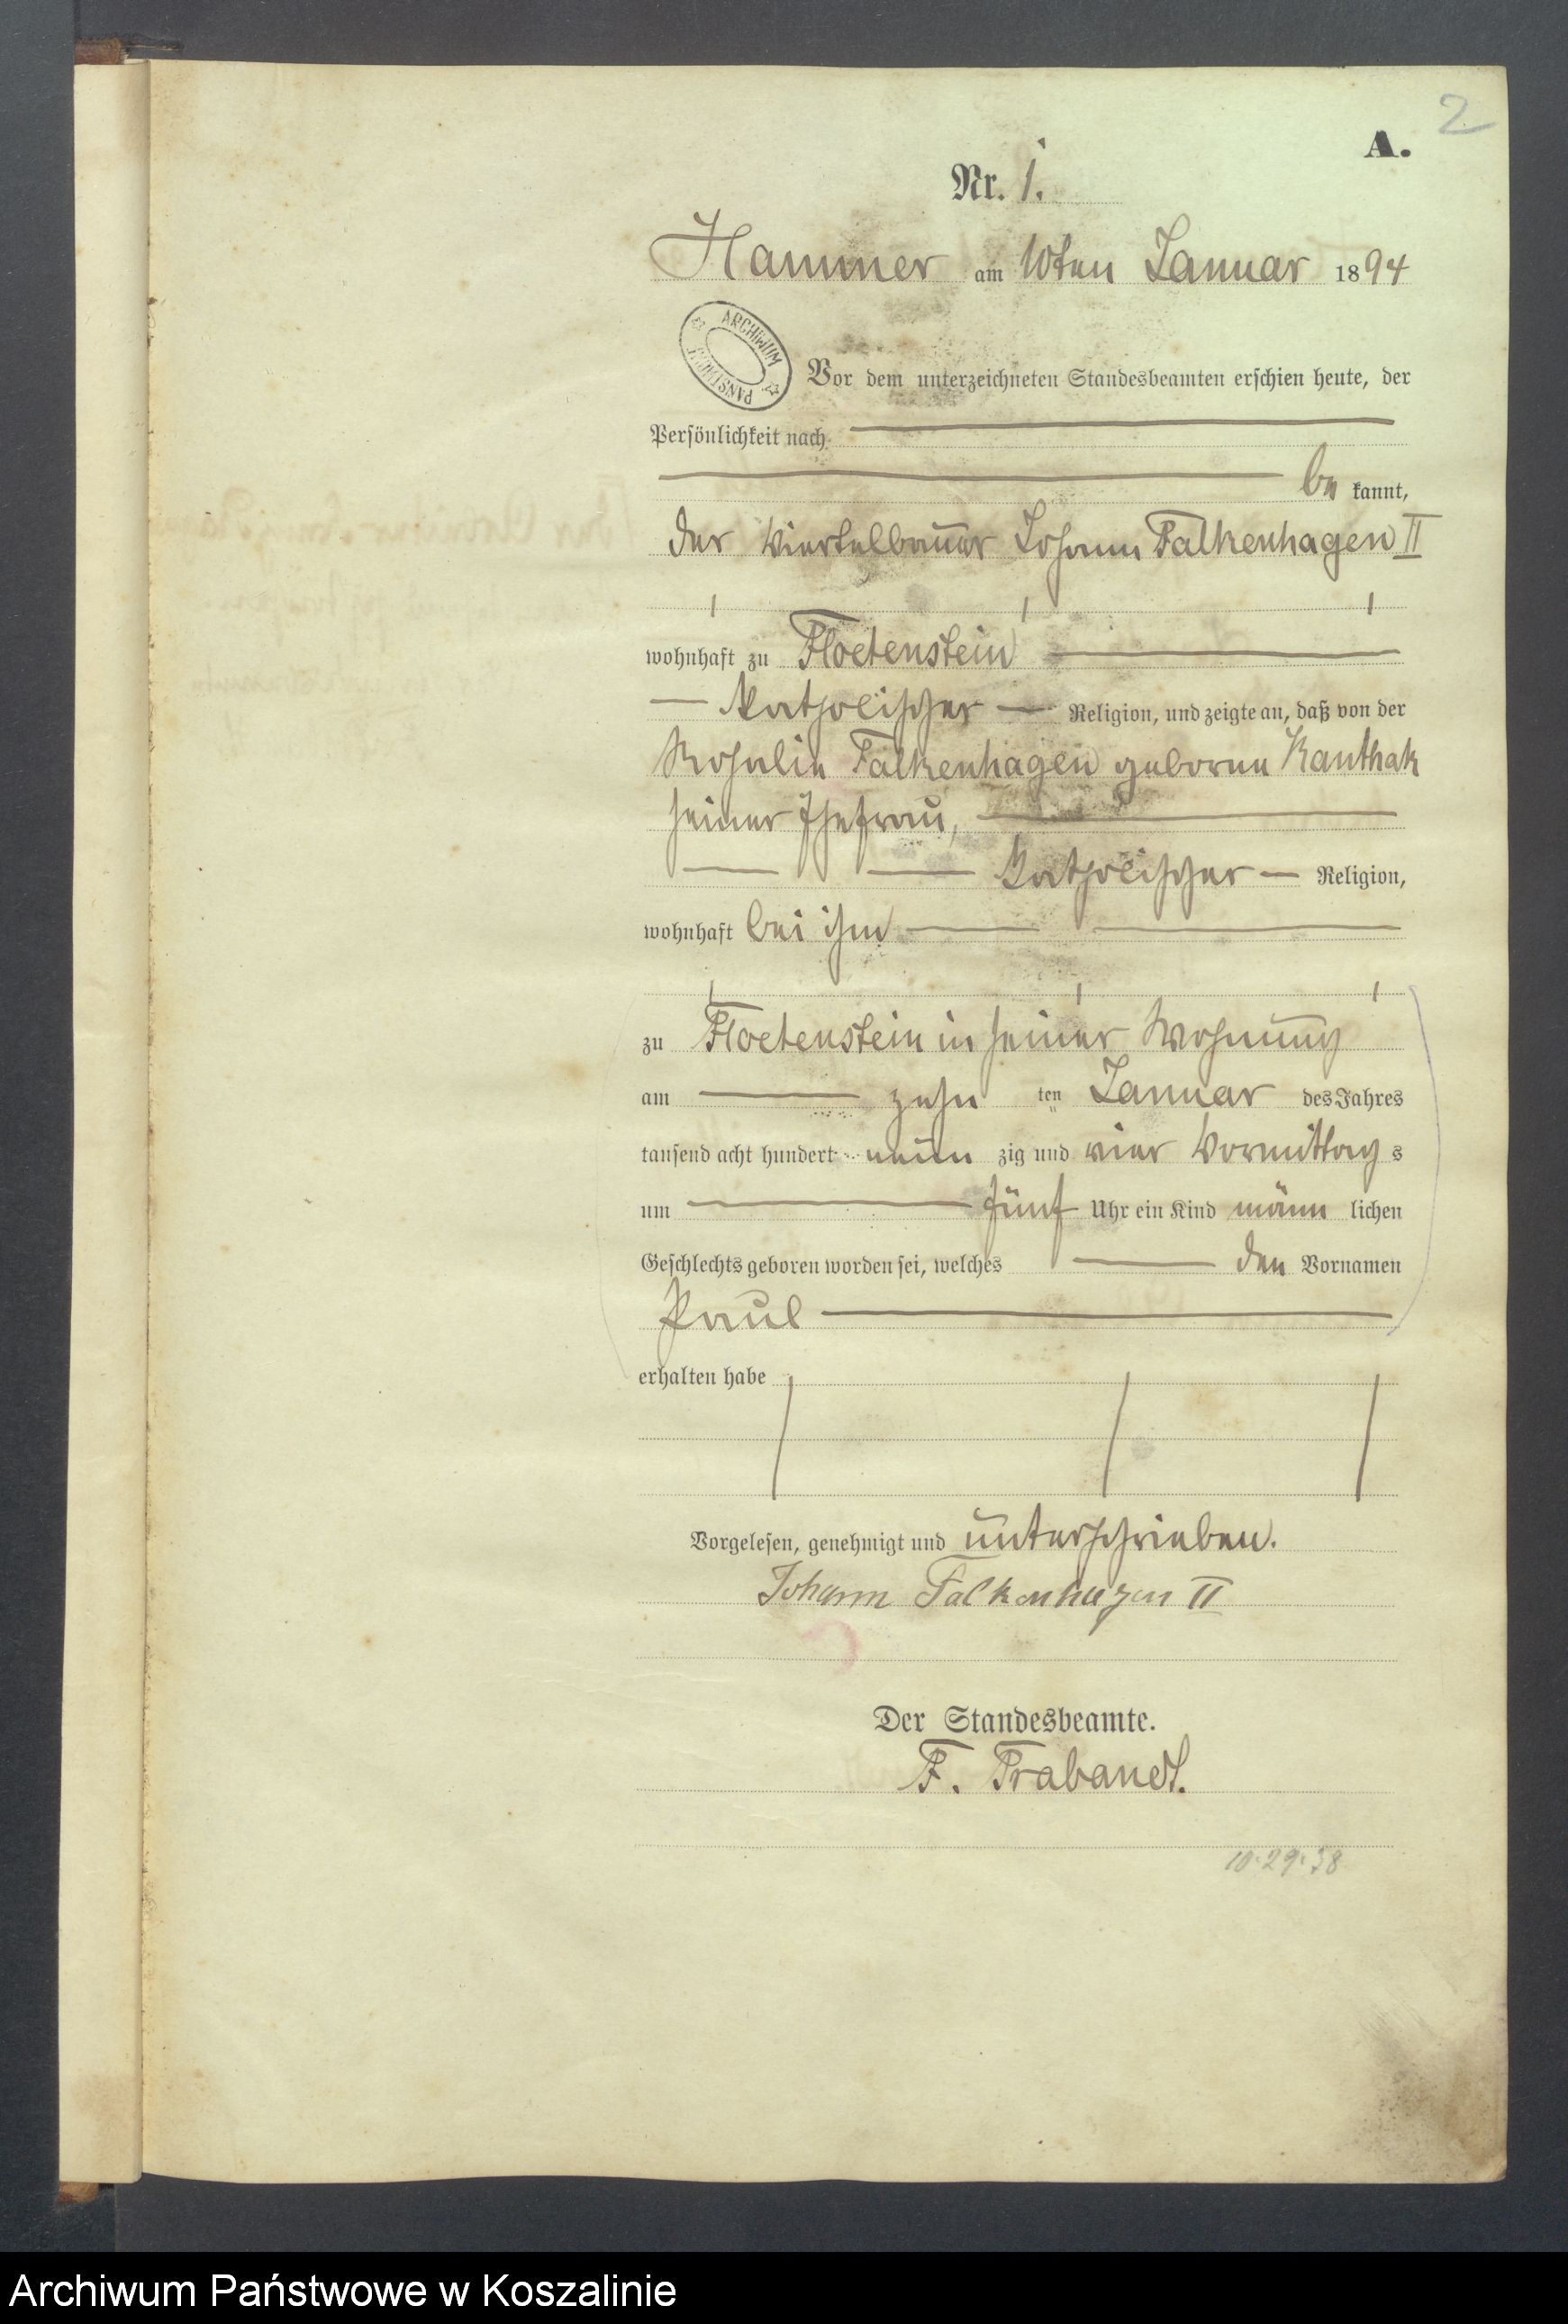 2
A.
Nr. 1.
Hammer am 10ten Januar 1894
ARCHIWUM PAŃSTWOWE
Vor dem unterzeichneten Standesbeamten erschien heute, der
Persönlichkeit nach
be kannt,
der Viertelbauer Johann Falkenhagen II
wohnhaft zu Floetenstein
katholischer Religion, und zeigte an, daß von der
Rosalie Falkenhagen geborene Kanthak
seiner Ehefrau,
katholischer Religion,
wohnhaft bei ihm
zu Floetenstein in seiner Wohnung
am zehn ten Januar des Jahres
tausend acht hundert neun zig und vier Vormittag s
um fünf Uhr ein Kind männ lichen
Geschlechts geboren worden sei, welches den Vornamen
Paul
erhalten habe
Vorgelesen, genehmigt und unterschrieben.
Johann Falkenhagen II
Der Standesbeamte.
F. Trabandt.
10.29.38
Archiwum Państwowe w Koszalinie